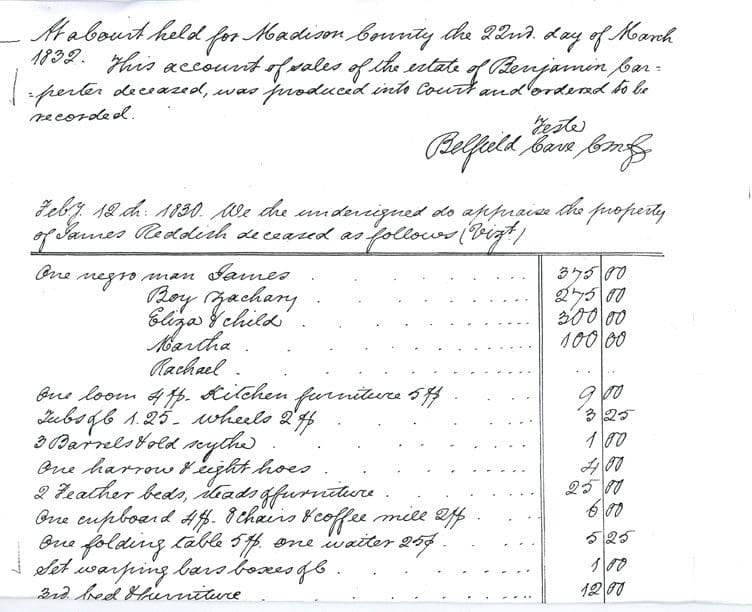 At a Court held for Madison County the 22nd. day of March
1832. This account of sales of the estate of Benjamin Car-
-penter deceased, was produced into Court and ordered to be
recorded.
Teste
Belfield Cave
Feby. 12th. 1830. We the undersigned do appraise the property
of James Reddish deceased as follows (Vizt.)
One negro man James . . . . . . . . 375 00
Boy Zachary . . . . . . . . 275 00
Eliza & child . . . . . . . . 300 00
Martha . . . . . . . . 100 00
Rachael . . . . . . . . .. ..
One loom 4$. Kitchen furniture 5$ . . . . 9 00
Tubs &c 1.25 - wheels 2$ . . . . . . 3 25
3 Barrels & old scythe . . . . . . . 1 00
One harrow & eight hoes . . . . . . . 4 00
2 Feather beds, steads & furniture . . . . . 25 00
One cupboard 4$. 8 chairs & coffee mill 2$ . . . 6 00
One folding table 5$. one waiter 25¢ . . . . 5 25
Set warping bars boxes &c . . . . . . 1 00
3rd. bed & furniture . . . . . . . 12 00